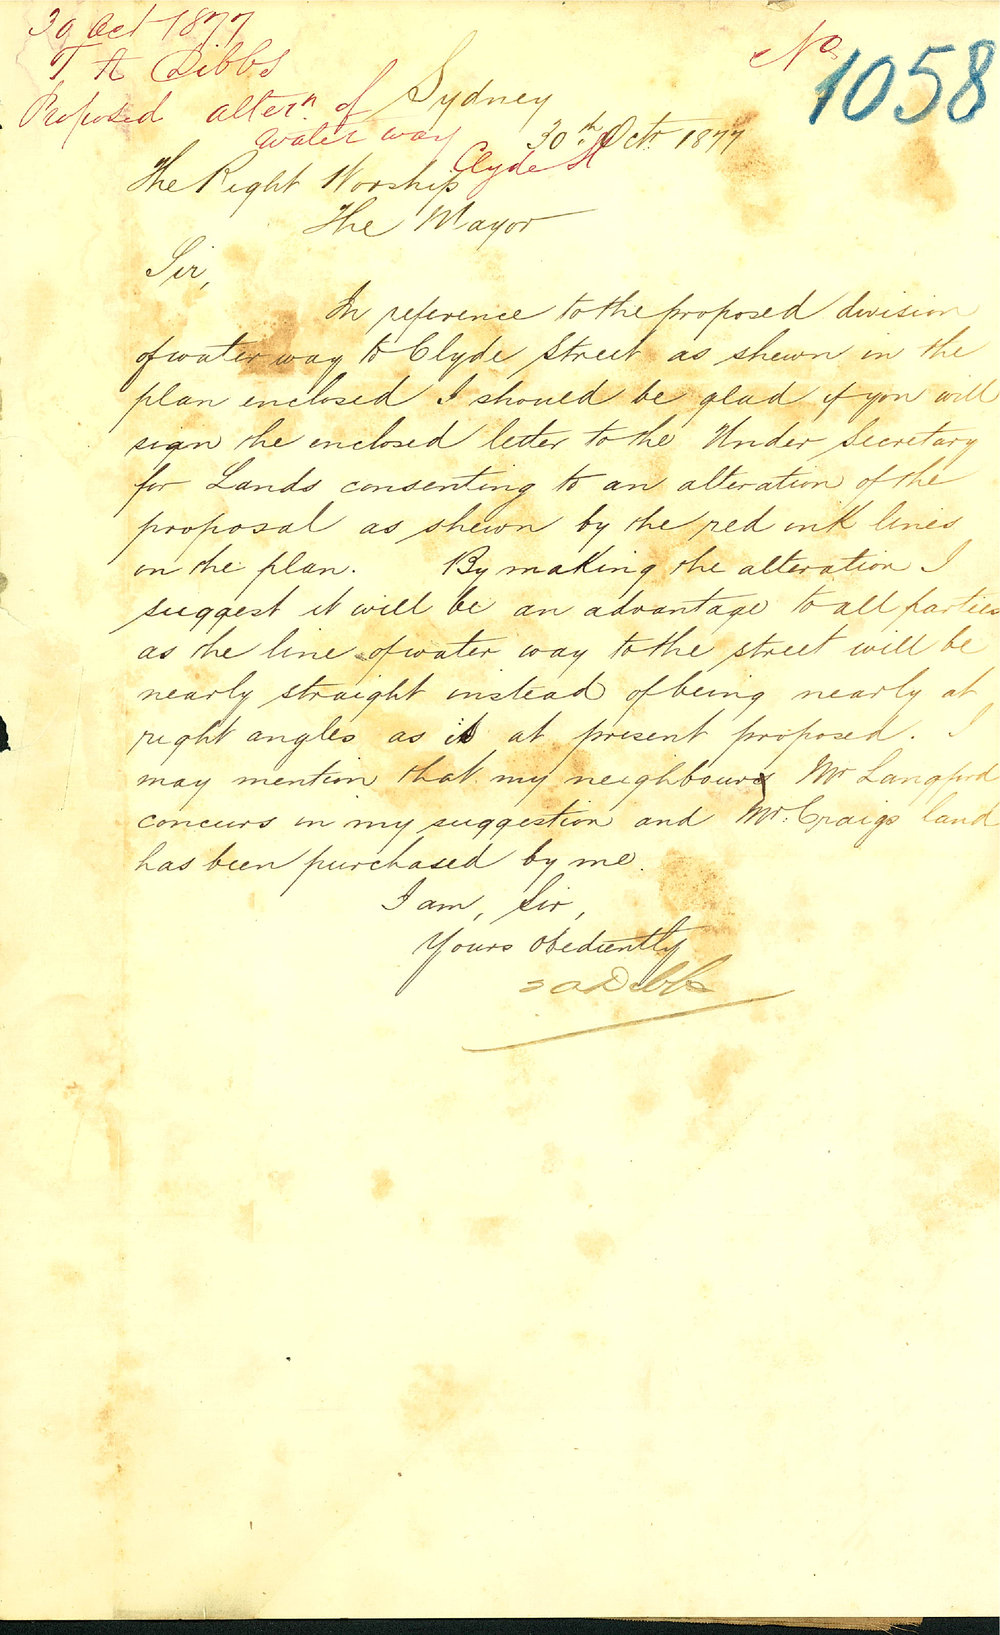 30 Oct 1877
T A Dibbs
Proposed altern of
water way
Clyde St
No 1058
Sydney
30th Octr 1877
The Right Worship
The Mayor
Sir,
In reference to the proposed division
of water way to Clyde Street as shewn in the
plan enclosed I should be glad if you will
sign the enclosed letter to the Under Secretary
for Lands consenting to an alteration of the
proposal as shewn by the red ink lines
on the plan. By making the alteration I
suggest it will be an advantage to all parties
as the line of water way to the street will be
nearly straight instead of being nearly at
right angles as is at present proposed. I
may mention that my neighbour Mr Langford
concurs in my suggestion and Mr. Craigs land
has been purchased by me.
I am, Sir,
Yours obediently
T A Dibbs